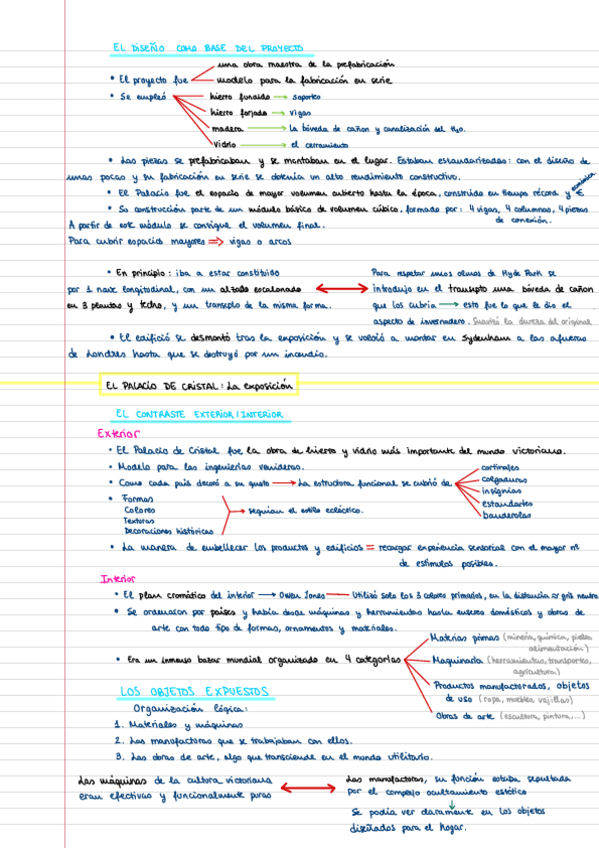 EL DISEÑO COMO BASE DEL PROYECTO
• El proyecto fue
una obra maestra de la prefabricación
modelo para la fabricación en serie
• Se empleó
hierro fundido → soportes
hierro forjado → vigas
madera → la bóveda de cañon y canalización del H2O.
vidrio → el cerramiento
• Las piezas se prefabricaban y se montaban en el lugar. Estaban estandarizadas: con el diseño de
unas pocas y su fabricación en serie se obtenía un alto rendimiento constructivo.
• El Palacio fue el espacio de mayor volumen cubierto hasta la época, construido en tiempo récord y € económica
• Su construcción parte de un módulo básico de volumen cúbico, formado por: 4 vigas, 4 columnas, 4 piezas
de conexión.
A partir de este módulo se consigue el volumen final.
Para cubrir espacios mayores ⇒ vigas o arcos
• En principio: iba a estar constituido
por 1 nave longitudinal, con un alzado escalonado
en 3 plantas y techo, y un transepto de la misma forma.
Para respetar unos olmos de Hyde Park se
introdujo en el transepto una bóveda de cañon
que los cubría → esto fue lo que le dio el
aspecto de invernadero. Suavizó la dureza del original
• El edificio se desmontó tras la exposición y se volvió a montar en Sydenham a las afueras
de Londres hasta que se destruyó por un incendio.
EL PALACIO DE CRISTAL: La exposición
EL CONTRASTE EXTERIOR/INTERIOR
Exterior
• El Palacio de Cristal fue la obra de hierro y vidrio más importante del mundo victoriano.
• Modelo para las ingenierías venideras.
• Como cada país decoró a su gusto → La estructura funcional se cubrió de
cortinajes
colgaduras
insignias
estandartes
banderolas
• Formas
Colores
Texturas
Decoraciones históricas
→ seguían el estilo ecléctico.
• La manera de embellecer los productos y edificios = recargar experiencia sensorial con el mayor nº
de estímulos posibles.
Interior
• El plan cromático del interior → Owen Jones — Utilizó solo los 3 colores primarios, en la distancia ≈ gris neutro
• Se ordenaron por países y había desde máquinas y herramientas hasta enseres domésticos y obras de
arte con todo tipo de formas, ornamentos y materiales.
• Era un inmenso bazar mundial organizado en 4 categorías
Materias primas (minería, química, pieles
alimentación)
Maquinaria (herramientas, transportes,
agricultura)
Productos manufacturados, objetos
de uso (ropa, muebles, vajillas)
Obras de arte (escultura, pintura,...)
LOS OBJETOS EXPUESTOS
Organización lógica:
1. Materiales y máquinas
2. Las manufacturas que se trabajaban con ellos.
3. Las obras de arte, algo que transciende en el mundo utilitario.
Las máquinas de la cultura victoriana
eran efectivas y funcionalmente puras
Las manufacturas, su función estaba sepultada
por el complejo ocultamiento estético
Se podía ver claramente en los objetos
diseñados para el hogar.